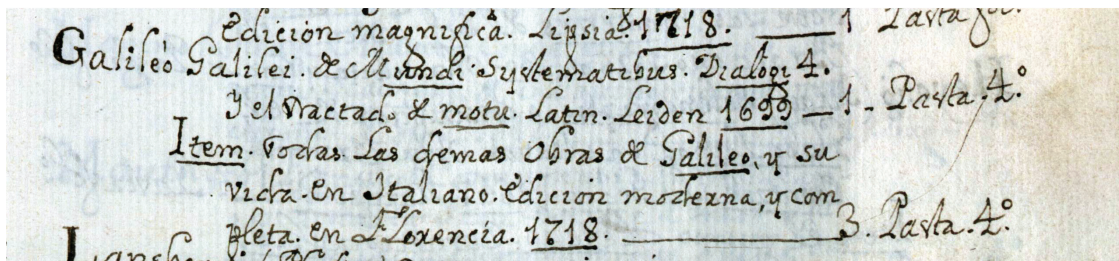 Edicion magnifica. Lipsia. 1718. — 1 Pasta fol.
Galileo Galilei. de Mundi Systematibus. Dialogi 4.
y el tractado de motu. Latin. Leiden 1699 — 1. Pasta. 4.º
Item. todas. Las demas Obras de Galileo, y su
vida. en Italiano. Edicion moderna, y com
pleta. en Florencia. 1718. — 3. Pasta. 4.º